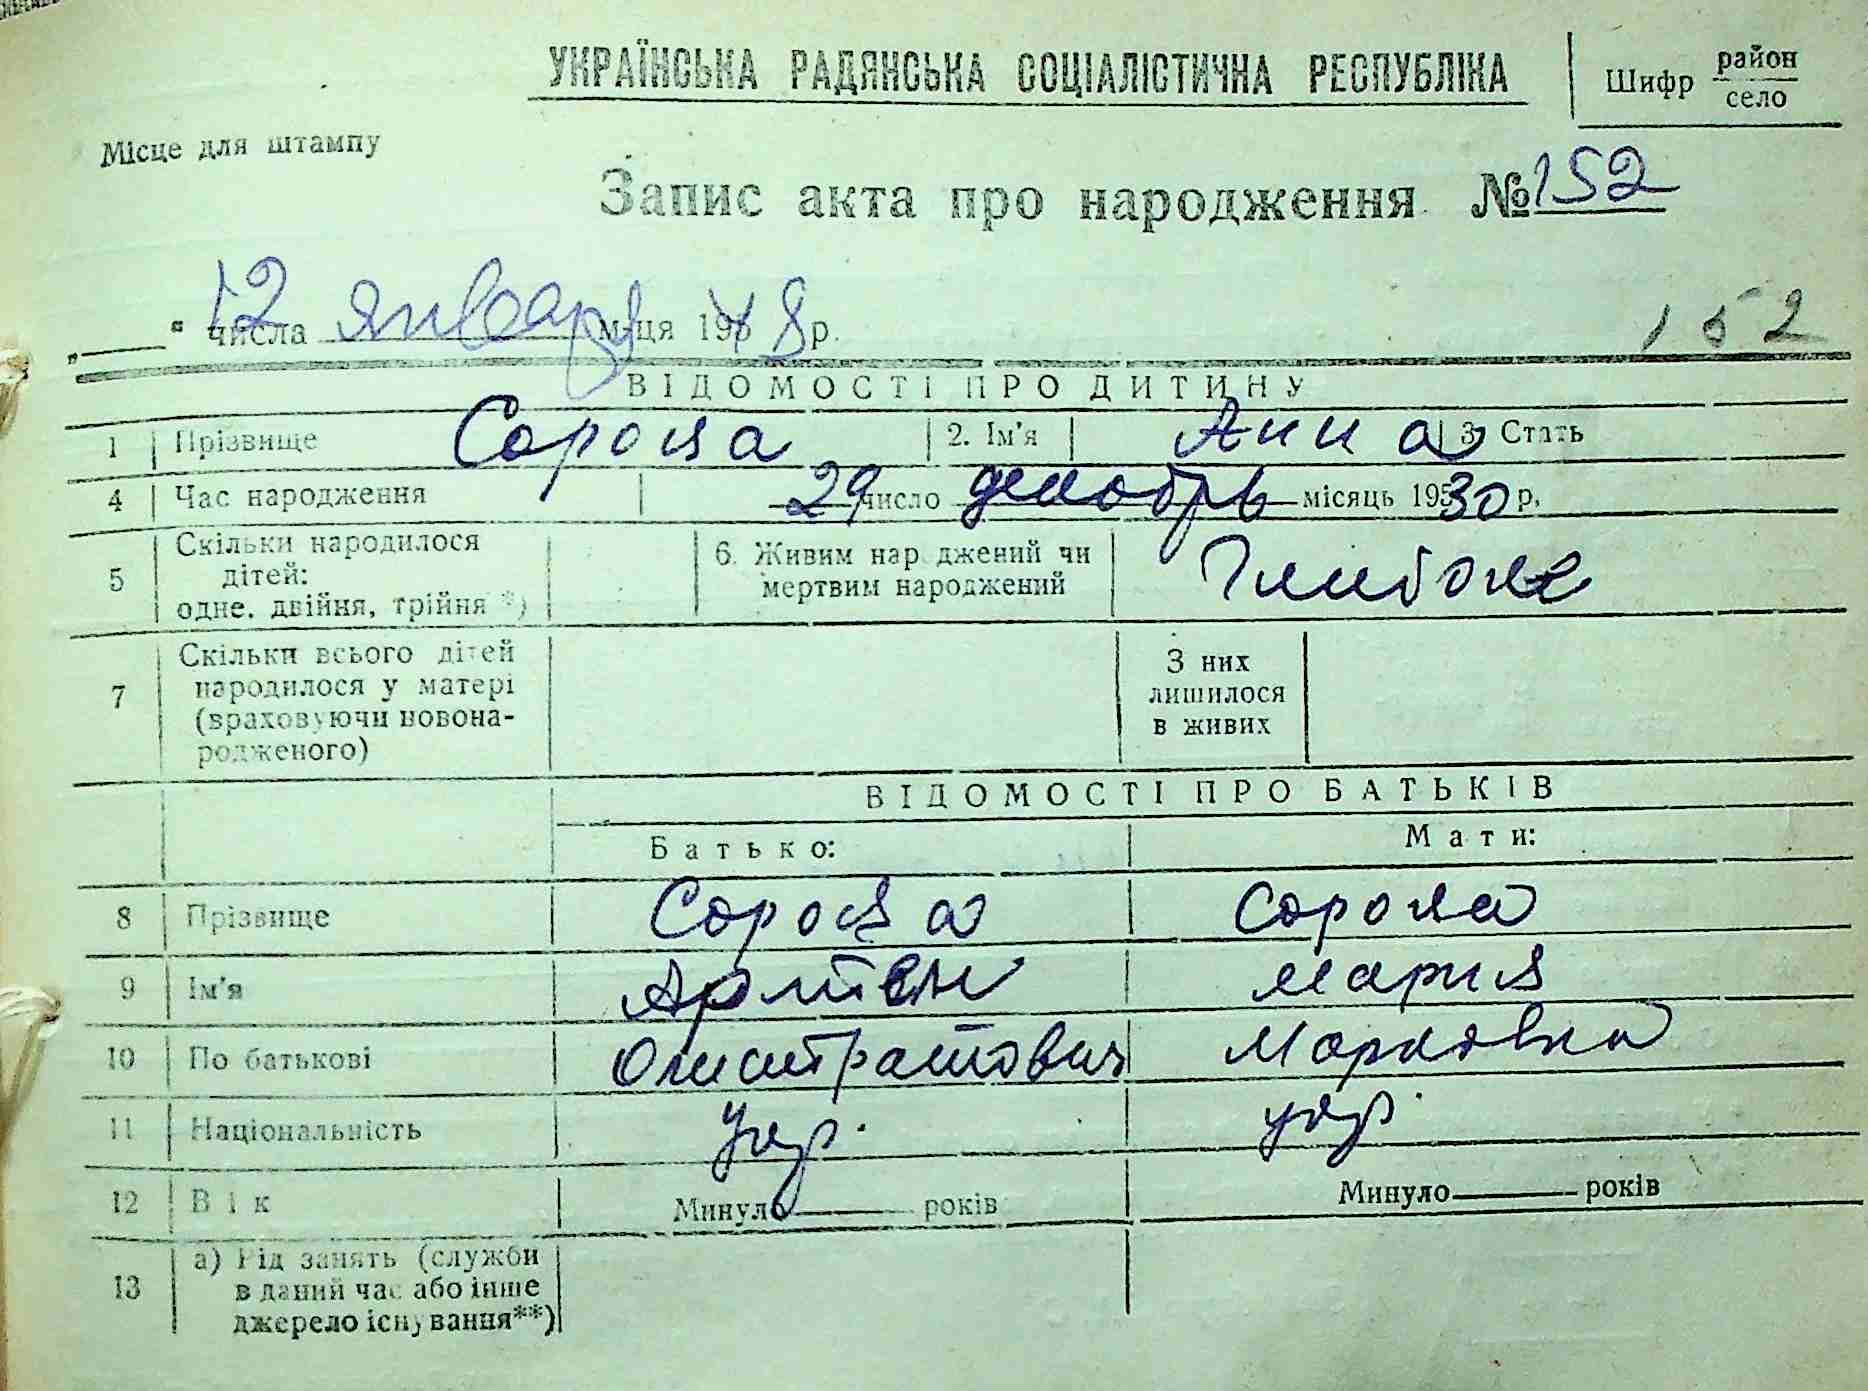 УКРАЇНСЬКА РАДЯНСЬКА СОЦІАЛІСТИЧНА РЕСПУБЛІКА
Шифр район
село
Місце для штампу
Запис акта про народження №152
"____" 12 числа января м-ця 1948 р.
152
ВІДОМОСТІ ПРО ДИТИНУ
1 Прізвище Сорока 2. Ім'я Анна 3 Стать
4 Час народження 29 число декабрь місяць 1930 р.
5 Скільки народилося дітей: одне. двійня, трійня *) 6. Живим нар джений чи мертвим народжений Глибоке
7 Скільки всього дітей народилося у матері (враховуючи новонародженого) З них лишилося в живих
ВІДОМОСТІ ПРО БАТЬКІВ
Батько: Мати:
8 Прізвище Сорока Сорока
9 Ім'я Артем Мария
10 По батькові Марковна
11 Національність укр. укр.
12 Вік Минуло____ років Минуло____ років
13 а) Рід занять (служби в даний час або інше джерело існування**)